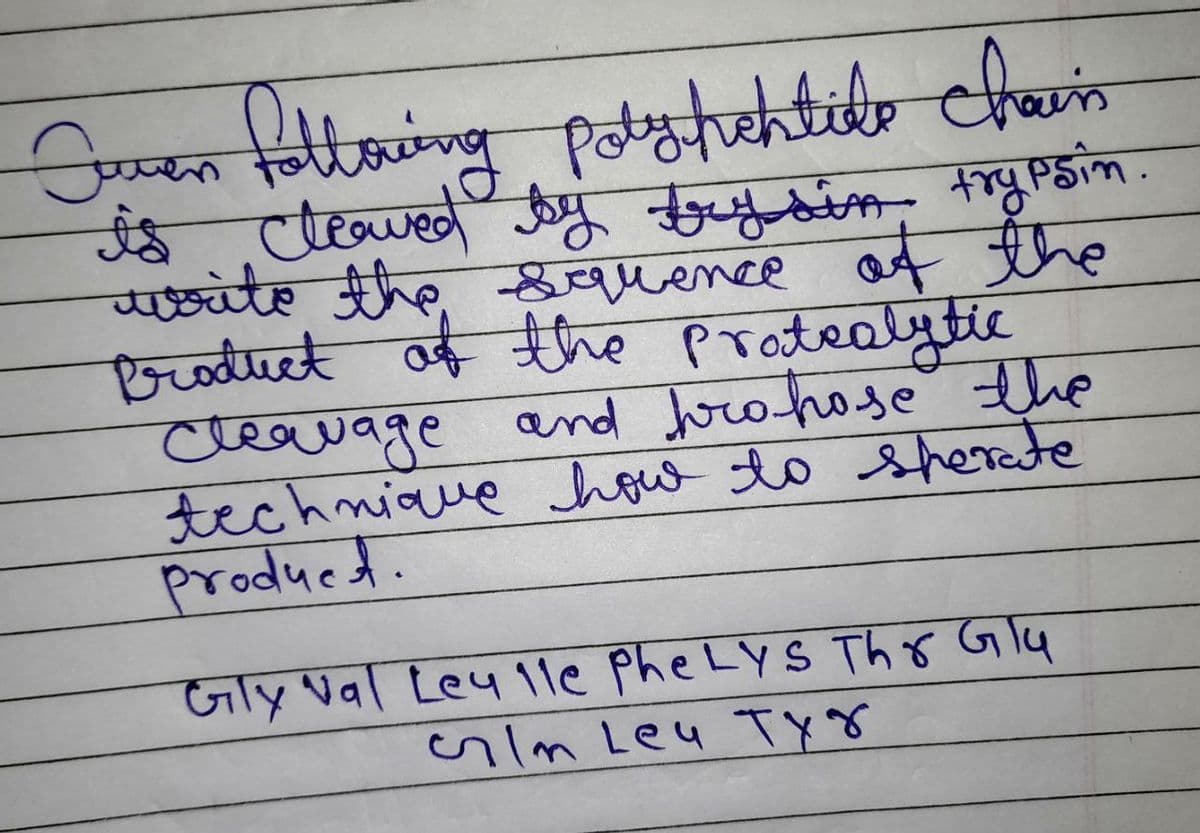 Given following polypeptide chain
is cleaved by trysin trypsin.
write the sequence of the
Product of the Protealytic
cleavage and propose the
technique how to sperate
product.
Gly Val Leu Ile Phe LYS Thr Glu
Gln Leu Tyr